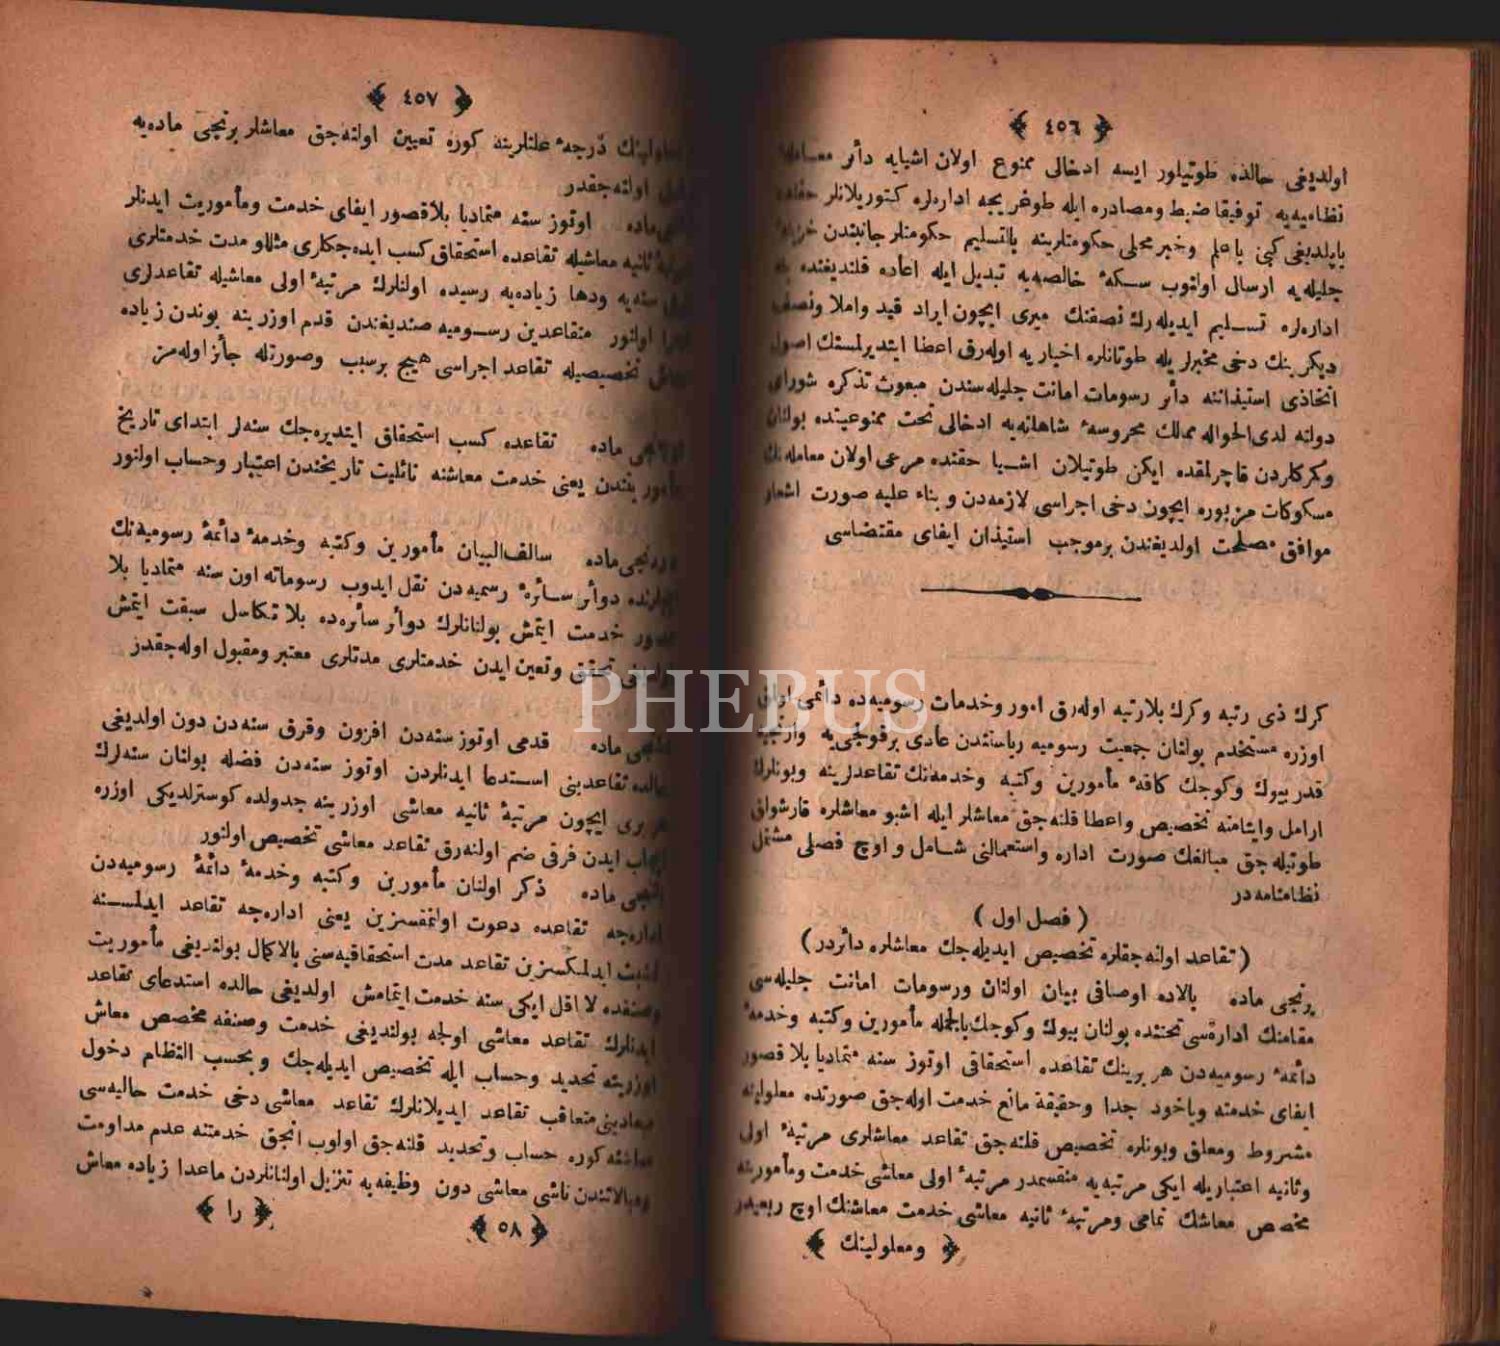 ٤٥٦
اولديغى حالده طوتيلور ايسه ادخالى ممنوع اولان اشيايه دأئر
نظاميه‌يه توفيقا ضبط ومصادره ايله طوغريجه اداره‌لره كتوريلانلر
ياپلديغى كبى باعلم وخبر محلى حكومتلرينه بالتسليم حكومتلر جانبندن
جليله‌يه ارسال اولنوب سكهٔ خالصه‌يه تبديل ايله اعاده قلنديغنده
اداره‌لره تسليم ايديله‌رك نصفنك ميرى ايچون ايراد قيد واملا ونصف
ديكرينك دخى مخبرلريله طوتانلره اخباريه اوله‌رق اعطا ايتديرلمسنك اصول
اتخاذى استيذاننه دأئر رسومات امانت جليله‌سندن مبعوث تذكره شوراى
دولته لدى‌الحواله ممالك محروسهٔ شاهانه‌يه ادخالى تحت ممنوعيتده بولنان
وكمركلردن قاچرلمقده ايكن طوتيلان اشيا حقنده مرعى اولان معامله‌نك
مسكوكات مزبوره ايچون دخى اجراسى لازمه‌دن و بناء عليه صورت اشعار
موافق مصلحت اولديغندن برموجب استيذان ايفاى مقتضاسى
كرك ذى رتبه وكرك بلارتبه اوله‌رق امور وخدمات رسوميه‌ده دائمى اولق
اوزره مستخدم بولنان جمعيت رسوميه رياستندن عادى برقولجى‌يه وارنجيه
قدر بيوك وكوچك كافهٔ مأمورين وكتبه وخدمه‌نك تقاعدلرينه وبونلرك
ارامل وايتامنه تخصيص واعطا قلنه‌جق معاشلر ايله اشبو معاشلره قارشولق
طوتيله‌جق مبالغك صورت اداره واستعمالنى شامل و اوچ فصلى مشتمل
نظامنامه‌در
( فصل اول )
( تقاعد اولنه‌جقلره تخصيص ايديله‌جك معاشلره دأئردر )
برنجى ماده بالاده اوصافى بيان اولنان ورسومات امانت جليله‌سى
مقامنك اداره‌سى تحتنده بولنان بيوك وكوچك بالجمله مأمورين وكتبه وخدمهٔ
دائمهٔ رسوميه‌دن هر برينك تقاعده استحقاقى اوتوز سنه متماديا بلا قصور
ايفاى خدمته وياخود جدا وحقيقة مانع خدمت اوله‌جق صورتده معلوليته
مشروط ومعلق وبونلره تخصيص قلنه‌جق تقاعد معاشلرى مرتبهٔ اولى
وثانيه اعتباريله ايكى مرتبه‌يه منقسمدر مرتبهٔ اولى معاشى خدمت ومأموريته
مخصص معاشك تمامى ومرتبهٔ ثانيه معاشى خدمت معاشنك اوچ ربعيدر
ومعلولينك
٤٥٧
درجهٔ علتلرينه كوره تعيين اولنه‌جق معاشلر برنجى ماده‌يه
اولنه‌جقدر
ماده اوتوز سنه متماديا بلاقصور ايفاى خدمت ومأموريت ايدنلر
ثانيه معاشيله تقاعده استحقاق كسب ايده‌جكلرى مثللو مدت خدمتلرى
سنه‌يه ودها زياده‌يه رسيده اولنلرك مرتبهٔ اولى معاشيله تقاعدلرى
اولنور متقاعدين رسوميه صنديغندن قدم اوزرينه بوندن زياده
تخصيصيله تقاعد اجراسى هيچ برسبب وصورتله جأئز اوله‌مز
ماده تقاعده كسب استحقاق ايتديره‌جك سنه‌لر ابتداى تاريخ
يعنى خدمت معاشنه نائليت تاريخندن اعتبار وحساب اولنور
ماده سالف‌البيان مأمورين وكتبه وخدمهٔ دائمهٔ رسوميه‌نك
دوأئر سأئرهٔ رسميه‌دن نقل ايدوب رسوماته اون سنه متماديا بلا
خدمت ايتمش بولنانلرك دوأئر سأئره‌ده بلا تكاسل سبقت ايتمش
تحقق وتعين ايدن خدمتلرى مدتلرى معتبر ومقبول اوله‌جقدر
ماده قدمى اوتوز سنه‌دن افزون وقرق سنه‌دن دون اولديغى
حالده تقاعدينى استدعا ايدنلردن اوتوز سنه‌دن فضله بولنان سنه‌لرك
هر برى ايچون مرتبهٔ ثانيه معاشى اوزرينه جدولده كوسترلديكى اوزره
ايجاب ايدن فرقى ضم اولنه‌رق تقاعد معاشى تخصيص اولنور
ماده ذكر اولنان مأمورين وكتبه وخدمهٔ دائمهٔ رسوميه‌دن
اداره‌جه تقاعده دعوت اولنمقسزين يعنى اداره‌جه تقاعد ايدلمسنه
ايدلمكسزين تقاعد مدت استحقاقيه‌سنى بالاكمال بولنديغى مأموريت
وصنفده لا اقل ايكى سنه خدمت ايتمامش اولديغى حالده استدعاى تقاعد
ايدنلرك تقاعد معاشى اولجه بولنديغى خدمت وصنفه مخصص معاش
اوزرينه تحديد وحساب ايله تخصيص ايديله‌جك و بحسب النظام دخول
ميعادينى متعاقب تقاعد ايديلانلرك تقاعد معاشى دخى خدمت حاليه‌سى
معاشنه كوره حساب وتحديد قلنه‌جق اولوب انجق خدمتنه عدم مداومت
ومبالاتندن ناشى معاشى دون وظيفه‌يه تنزيل اولنانلردن ماعدا زياده معاش
٥٨
را
PHEBUS